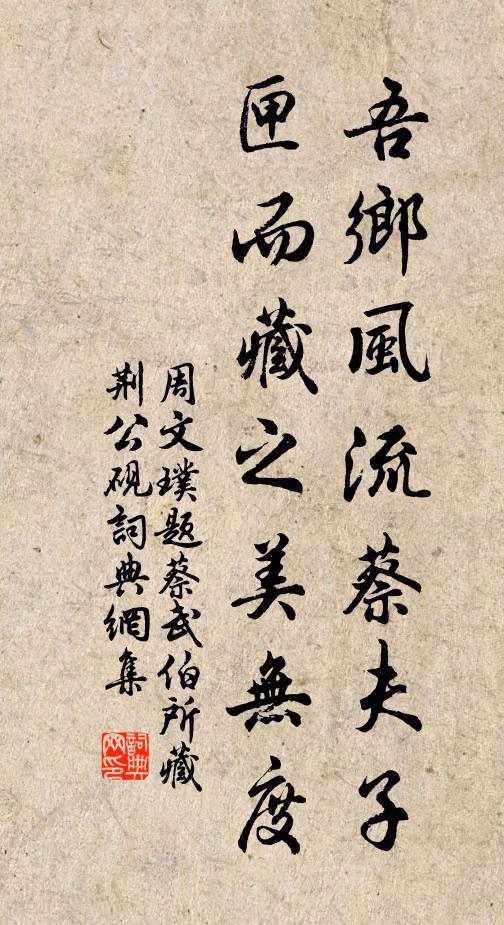 吾鄉風流蔡夫子
匣而藏之美無度
周文璞題蔡武伯所藏
荆公硯詞典網集
詞典
网印